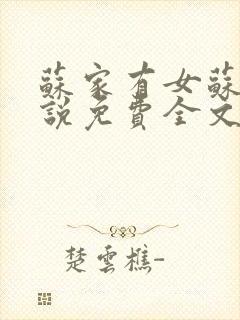 蘇家有女蘇
說免費全文
楚雲樵-